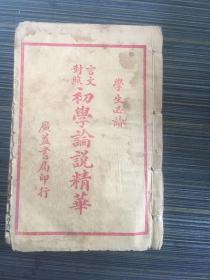 學生必諭
言文對照
初學論說精華
廣益書局印行